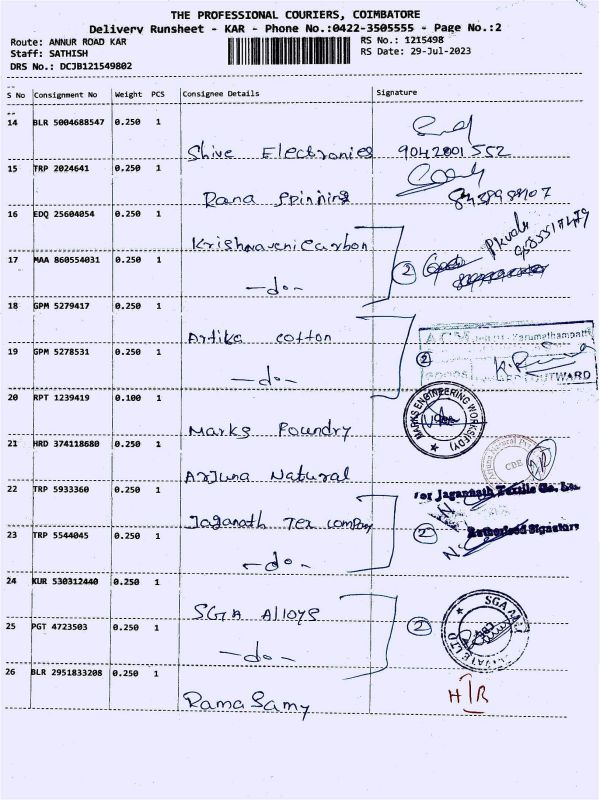 THE PROFESSIONAL COURIERS, COIMBATORE
Delivery Runsheet - KAR - Phone No.:0422-3505555 - Page No.:2
Route: ANNUR ROAD KAR RS No.: 1215498
Staff: SATHISH RS Date: 29-Jul-2023
DRS No.: DCJB121549802
S No Consignment No Weight PCS Consignee Details Signature
14 BLR 5004688547 0.250 1
Shive Electronies 9042001552
15 TRP 2024641 0.250 1
Rana Spinning
16 EDQ 25604054 0.250 1
Krishnaveni Carbon
17 MAA 860554031 0.250 1
-do- 2
18 GPM 5279417 0.250 1
Artika cotton
19 GPM 5278531 0.250 1
-do- 2
ACM Karumathampatti
OUTWARD
20 RPT 1239419 0.100 1
Marks Foundry
MARKS ENGINEERING WORKS (FDY)
21 HRD 374118680 0.250 1
Arjuna Natural
CDE
22 TRP 5933360 0.250 1
For Jagannath Textile Co. Ltd.
Jaganath Tex company
23 TRP 5544045 0.250 1
Authorised Signatory
-do- 2
24 KUR 530312440 0.250 1
SGA Alloys
25 PGT 4723503 0.250 1
-do- 2
SGA
26 BLR 2951833208 0.250 1
RamaSamy